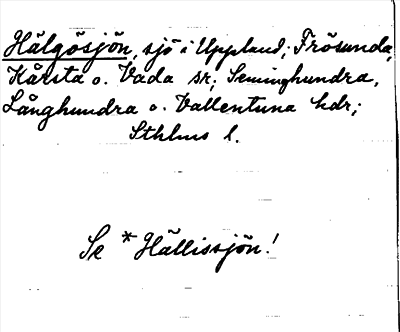 Hälgösjön, sjö i Uppland; Frösunda,
Kårsta o. Vada sr; Seminghundra,
Långhundra o. Vallentuna hdr;
Sthlms l.
Se *Hällissjön!